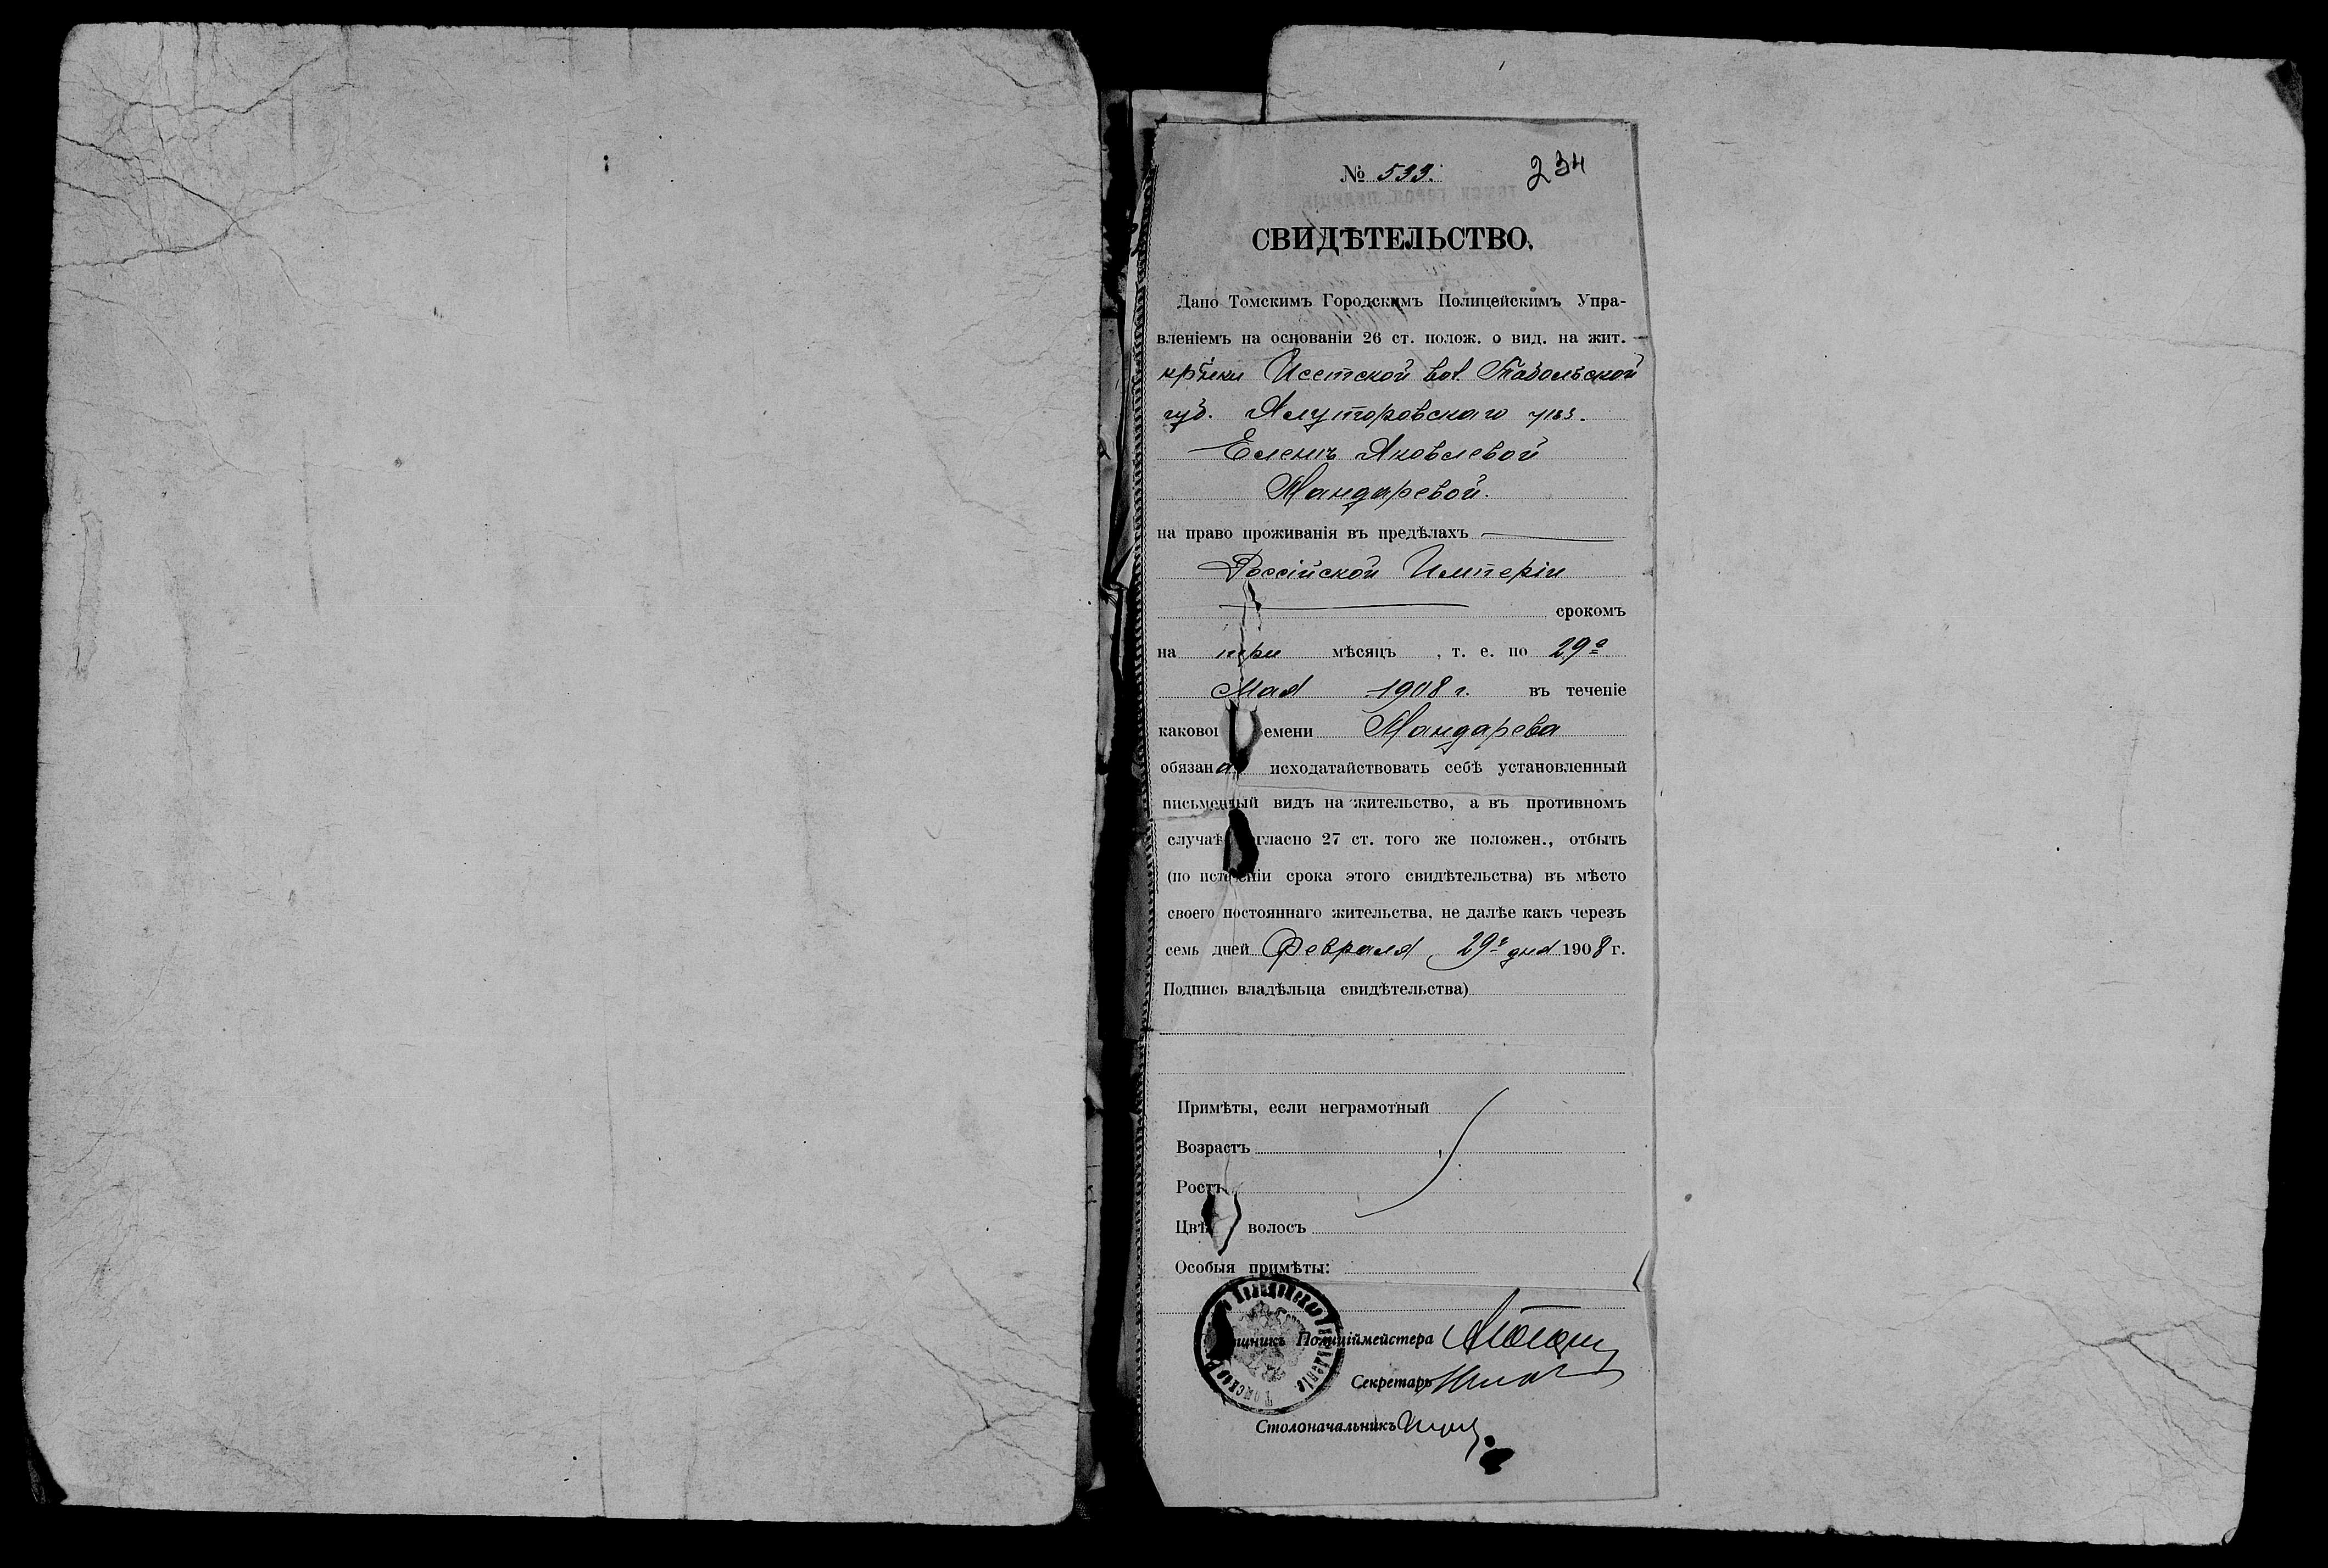 № 533. 234
СВИДѢТЕЛЬСТВО.
Дано Томскимъ Городскимъ Полицейскимъ Упра-
вленіемъ на основаніи 26 ст. полож. о вид. на жит.
кр-нки Исетской вол. Тобольской
губ. Ялуторовскаго уѣз.
Еленѣ Яковлевой
Мандаревой.
на право проживанія въ предѣлахъ
Россійской Имперіи
срокомъ
на три мѣсяцъ , т. е. по 29е
Мая 1908 г. въ теченіе
каково емени Мандарева
обязана исходатайствовать себѣ установленный
письменный видъ на жительство, а въ противномъ
случаѣ гласно 27 ст. того же положен., отбыть
(по истеченіи срока этого свидѣтельства) въ мѣсто
своего постояннаго жительства, не далѣе какъ черезъ
семь дней Февраля 29е дня 1908 г.
Подпись владѣльца свидѣтельства)
Примѣты, если неграмотный
Возрастъ
Ростъ
Цвѣ волосъ
Особыя примѣты:
щникъ Полиціймейстера
Секретарь
Столоначальникъ